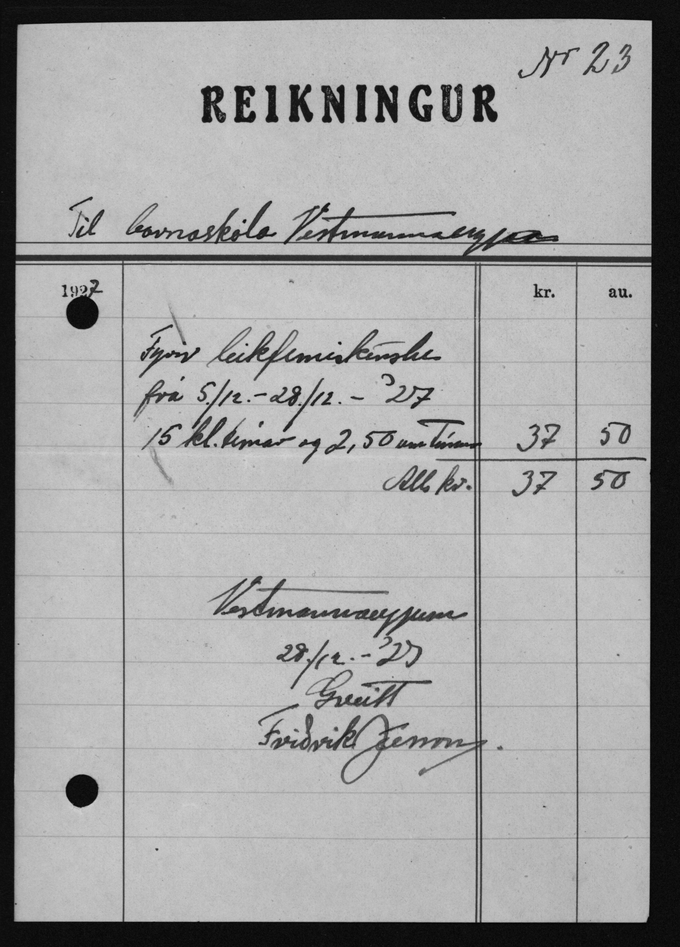 Nr 23
REIKNINGUR
Til barnaskóla Vestmannaeyja
1927 kr. au.
Fyrir leikfimiskenslu
frá 5./12. - 28./12. - '27
15 kl. tímar og 2,50 um tímann 37 50
Alls kr. 37 50
Vestmannaeyjum
28./12. - '27
Greitt
Friðrik Jesson.